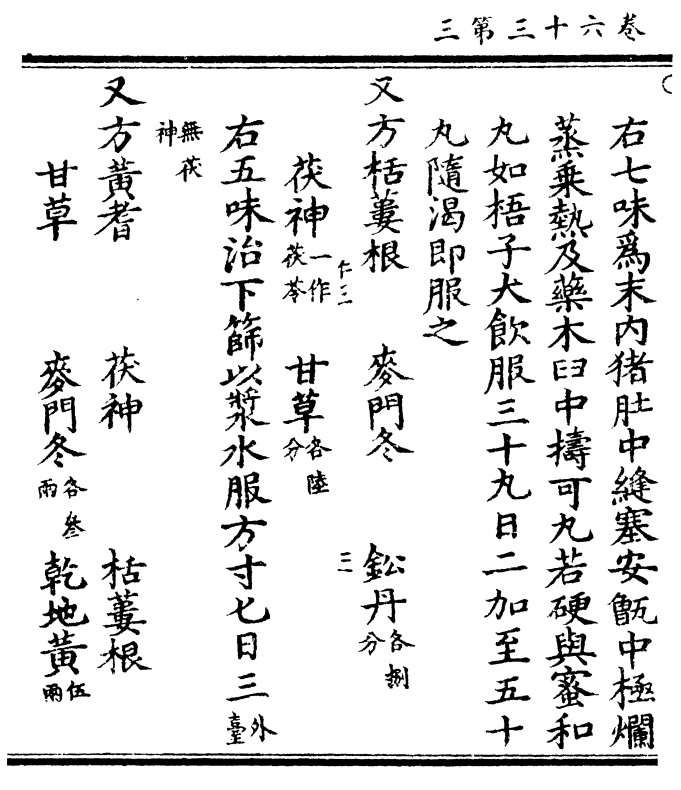 卷六十三第三
右七味爲末內猪肚中縫塞安甑中極爛
蒸乗熱及藥木臼中擣可丸若硬與蜜和
丸如梧子大飲服三十丸日二加至五十
丸隨渴即服之
又方栝蔞根 麥門冬 鈆丹各捌分
仁三 三
茯神一作茯苓 甘草各陸分
右五味治下篩以漿水服方寸匕日三外臺
無茯神
又方黃耆 茯神 栝蔞根
甘草 麥門冬各叁兩 乾地黃伍兩